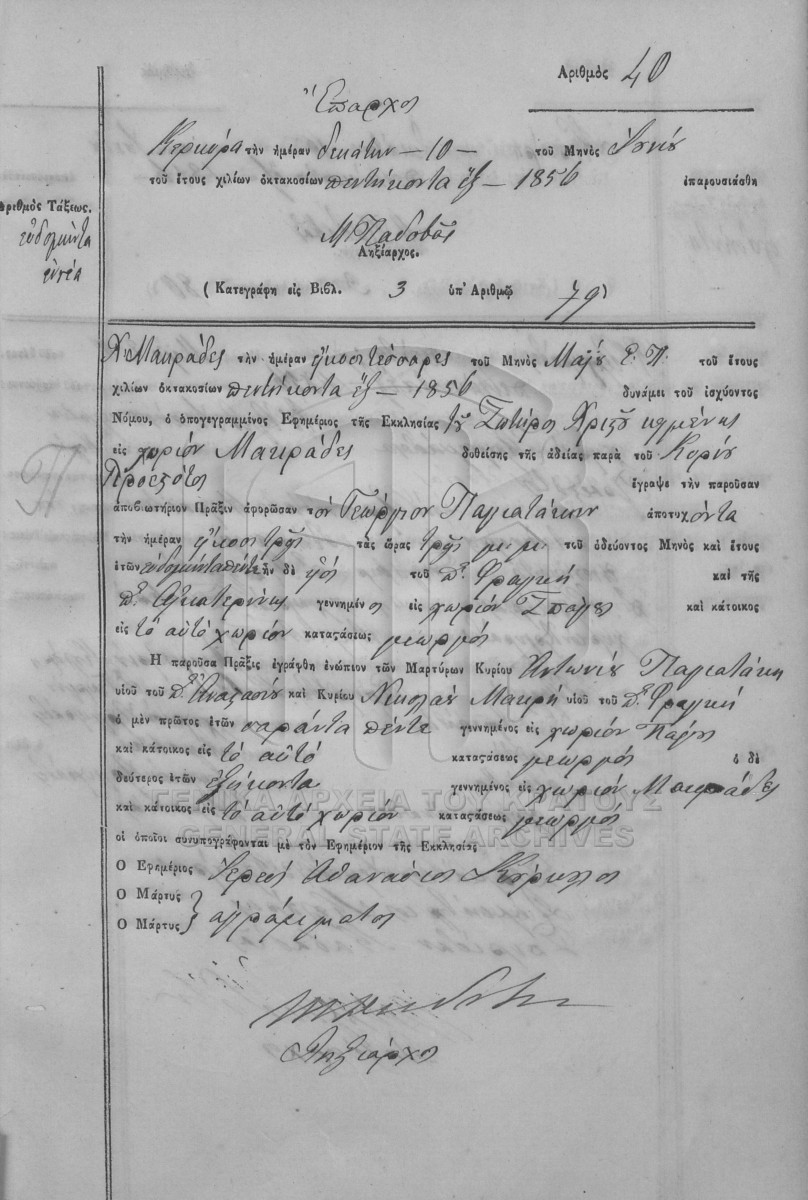 Ἀριθμὸς 40
Ἔπαρχος
Κερκύρα τὴν ἡμέραν δεκάτην — 10 — τοῦ Μηνὸς Ἰουνίου
τοῦ ἔτους χιλίων ὀκτακοσίων πεντήκοντα ἕξ — 1856 ἐπαρουσιάσθη
Ἀριθμὸς Τάξεως.
ἑβδομήντα
ἐννέα
Μ Παδοβᾶς
Ληξίαρχος.
( Κατεγράφη εἰς Βιβλ. 3 ὑπ' Ἀριθμῷ 79)
Χν Μακράδες τὴν ἡμέραν ἤκοσι τέσσαρες τοῦ Μηνὸς Μαΐου Ε. Π. τοῦ ἔτους
χιλίων ὀκτακοσίων πεντήκοντα ἕξ — 1856 δυνάμει τοῦ ἰσχύοντος
Νόμου, ὁ ὑπογεγραμμένος Ἐφημέριος τῆς Ἐκκλησίας τοῦ Σωτῆρος Χριστοῦ κημένης
εἰς χωρίον Μακράδες δοθείσης τῆς ἀδείας παρὰ τοῦ Κυρίου
Προεστότος ἔγραψε τὴν παροῦσαν
ἀποβιωτήριον Πρᾶξιν ἀφορῶσαν τὸν Γεώργιον Παγιατάκην ἀποτυχόντα
τὴν ἡμέραν ἤκοσι τρῆς τὰς ὥρας τρῆς μ: μ: τοῦ ὁδεύοντος Μηνὸς καὶ ἔτους
ἐτῶν ἑβδομήντα πέντε ἦν δὲ υἱὸς τοῦ πὲ Φραγκῆ καὶ τῆς
πὲ Αἰκατερίνης γεννημένος εἰς χωρίον καὶ κάτοικος
εἰς τὸ αὐτὸ χωρίον καταστάσεως γεωργός
Ἡ παροῦσα Πρᾶξις ἐγράφθη ἐνώπιον τῶν Μαρτύρων Κυρίου Ἀντωνίου Παγιατάκη
υἱοῦ τοῦ πὲ Ἀναστασίου καὶ Κυρίου Νικολάου Μακρῆ υἱοῦ τοῦ πὲ Φραγκῆ
ὁ μὲν πρῶτος ἐτῶν σαράντα πέντε γεννημένος εἰς χωρίον Πάγους
καὶ κάτοικος εἰς τὸ αὐτὸ καταστάσεως γεωργός ὁ δὲ
δεύτερος ἐτῶν ἑξήκοντα γεννημένος εἰς χωρίον Μακράδες
καὶ κάτοικος εἰς τὸ αὐτὸ χωρίον καταστάσεως γεωργός
οἱ ὁποῖοι συνυπογράφονται μὲ τὸν Ἐφημέριον τῆς Ἐκκλησίας
Ὁ Ἐφημέριος Ἱερεὺς Ἀθανάσιος
Ὁ Μάρτυς
Ὁ Μάρτυς } ἀγράμματοι
Ληξίαρχος
ΓΕΝΙΚΑ ΑΡΧΕΙΑ ΤΟΥ ΚΡΑΤΟΥΣ
GENERAL STATE ARCHIVES